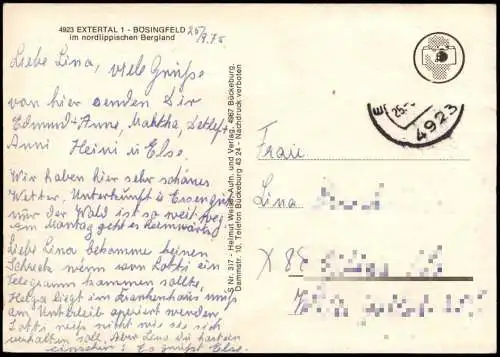 4923 EXTERTAL 1 - BÖSINGFELD
im nordlippischen Bergland
25/9.75
Liebe Lina, viele Grüße
von hier senden Dir
Edmund + Anne, Martha, Detlef +
Anni Heini u Else.
Wir haben hier sehr schönes
Wetter, Unterkunft u Essen gut
nur der Wald ist so weit weg
am Montag geht es Heimwärts
Liebe Lina bekomme keinen
Schreck wenn von Lotti ein
Telegramm kommen sollte,
Helga liegt im Krankenhaus muß
am Unterleib operiert werden,
Lotti weiß nicht wie sie sich
verhalten soll. Aber Lina du
Es grüßt Else.
S Nr. 317 - Helmut Weber Aufn. und Verlag, 4967 Bückeburg,
Dammstr. 10, Telefon Bückeburg 43 24 - Nachdruck verboten
25.
4923
Frau
Lina
X 8